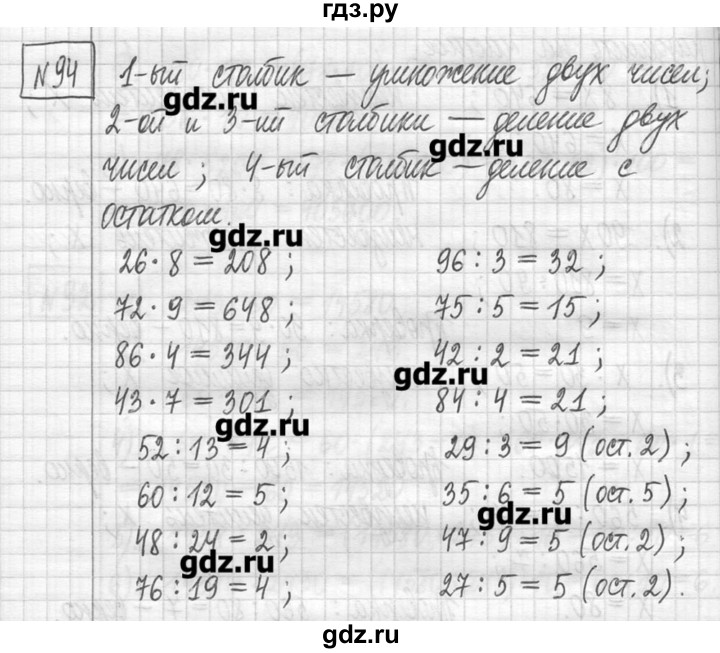 гдз.ру
№94 1-ый столбик — умножение двух чисел;
gdz.ru
2-ой и 3-ий столбики — деление двух
gdz.ru
чисел; 4-ый столбик — деление с
остатком.
gdz.ru
26 · 8 = 208 ; 96 : 3 = 32 ;
72 · 9 = 648 ; 75 : 5 = 15 ;
86 · 4 = 344 ; 42 : 2 = 21 ;
gdz.ru
43 · 7 = 301 ; 84 : 4 = 21 ;
gdz.ru
52 : 13 = 4 ; 29 : 3 = 9 (ост. 2) ;
60 : 12 = 5 ; 35 : 6 = 5 (ост. 5) ;
gdz.ru
48 : 24 = 2 ; 47 : 9 = 5 (ост. 2) ;
gdz.ru
76 : 19 = 4 ; 27 : 5 = 5 (ост. 2) .
gdz.ru